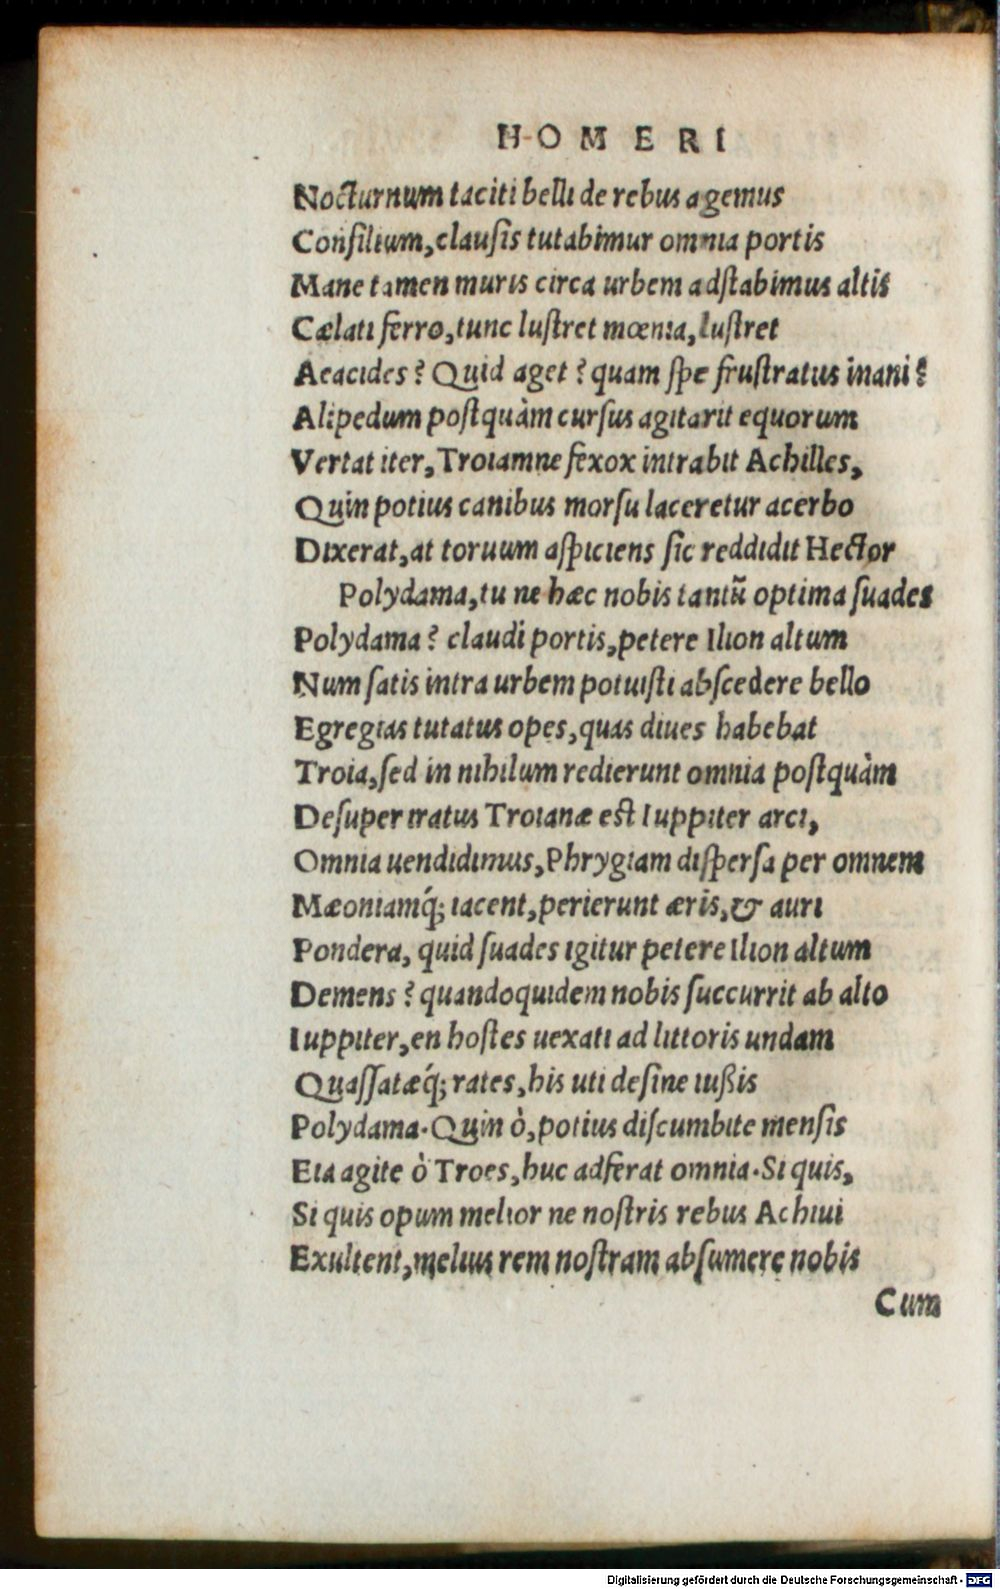 HOMERI
Nocturnum taciti belli de rebus agemus
Consilium, clausis tutabimur omnia portis
Mane tamen muris circa urbem adstabimus altis
Cælati ferro, tunc lustret mœnia, lustret
Aeacides? Quid aget? quam spe frustratus inani?
Alipedum postquàm cursus agitarit equorum
Vertat iter, Troiamne fexox intrabit Achilles,
Quin potius canibus morsu laceretur acerbo
Dixerat, at toruum aspiciens sic reddidit Hector
Polydama, tu ne hæc nobis tantũ optima suades
Polydama? claudi portis, petere Ilion altum
Num satis intra urbem potuisti abscedere bello
Egregias tutatus opes, quas diues habebat
Troia, sed in nihilum redierunt omnia postquàm
Desuper iratus Troianæ est Iuppiter arci,
Omnia uendidimus, Phrygiam dispersa per omnem
Mæoniamq́; iacent, perierunt æris, & auri
Pondera, quid suades igitur petere Ilion altum
Demens? quandoquidem nobis succurrit ab alto
Iuppiter, en hostes uexati ad littoris undam
Quassatæq́; rates, his uti desine iußis
Polydama. Quin ò, potius discumbite mensis
Eia agite ò Troes, huc adferat omnia. Si quis,
Si quis opum melior ne nostris rebus Achiui
Exultent, melius rem nostram absumere nobis
Cum
Digitalisierung gefördert durch die Deutsche Forschungsgemeinschaft - DFG